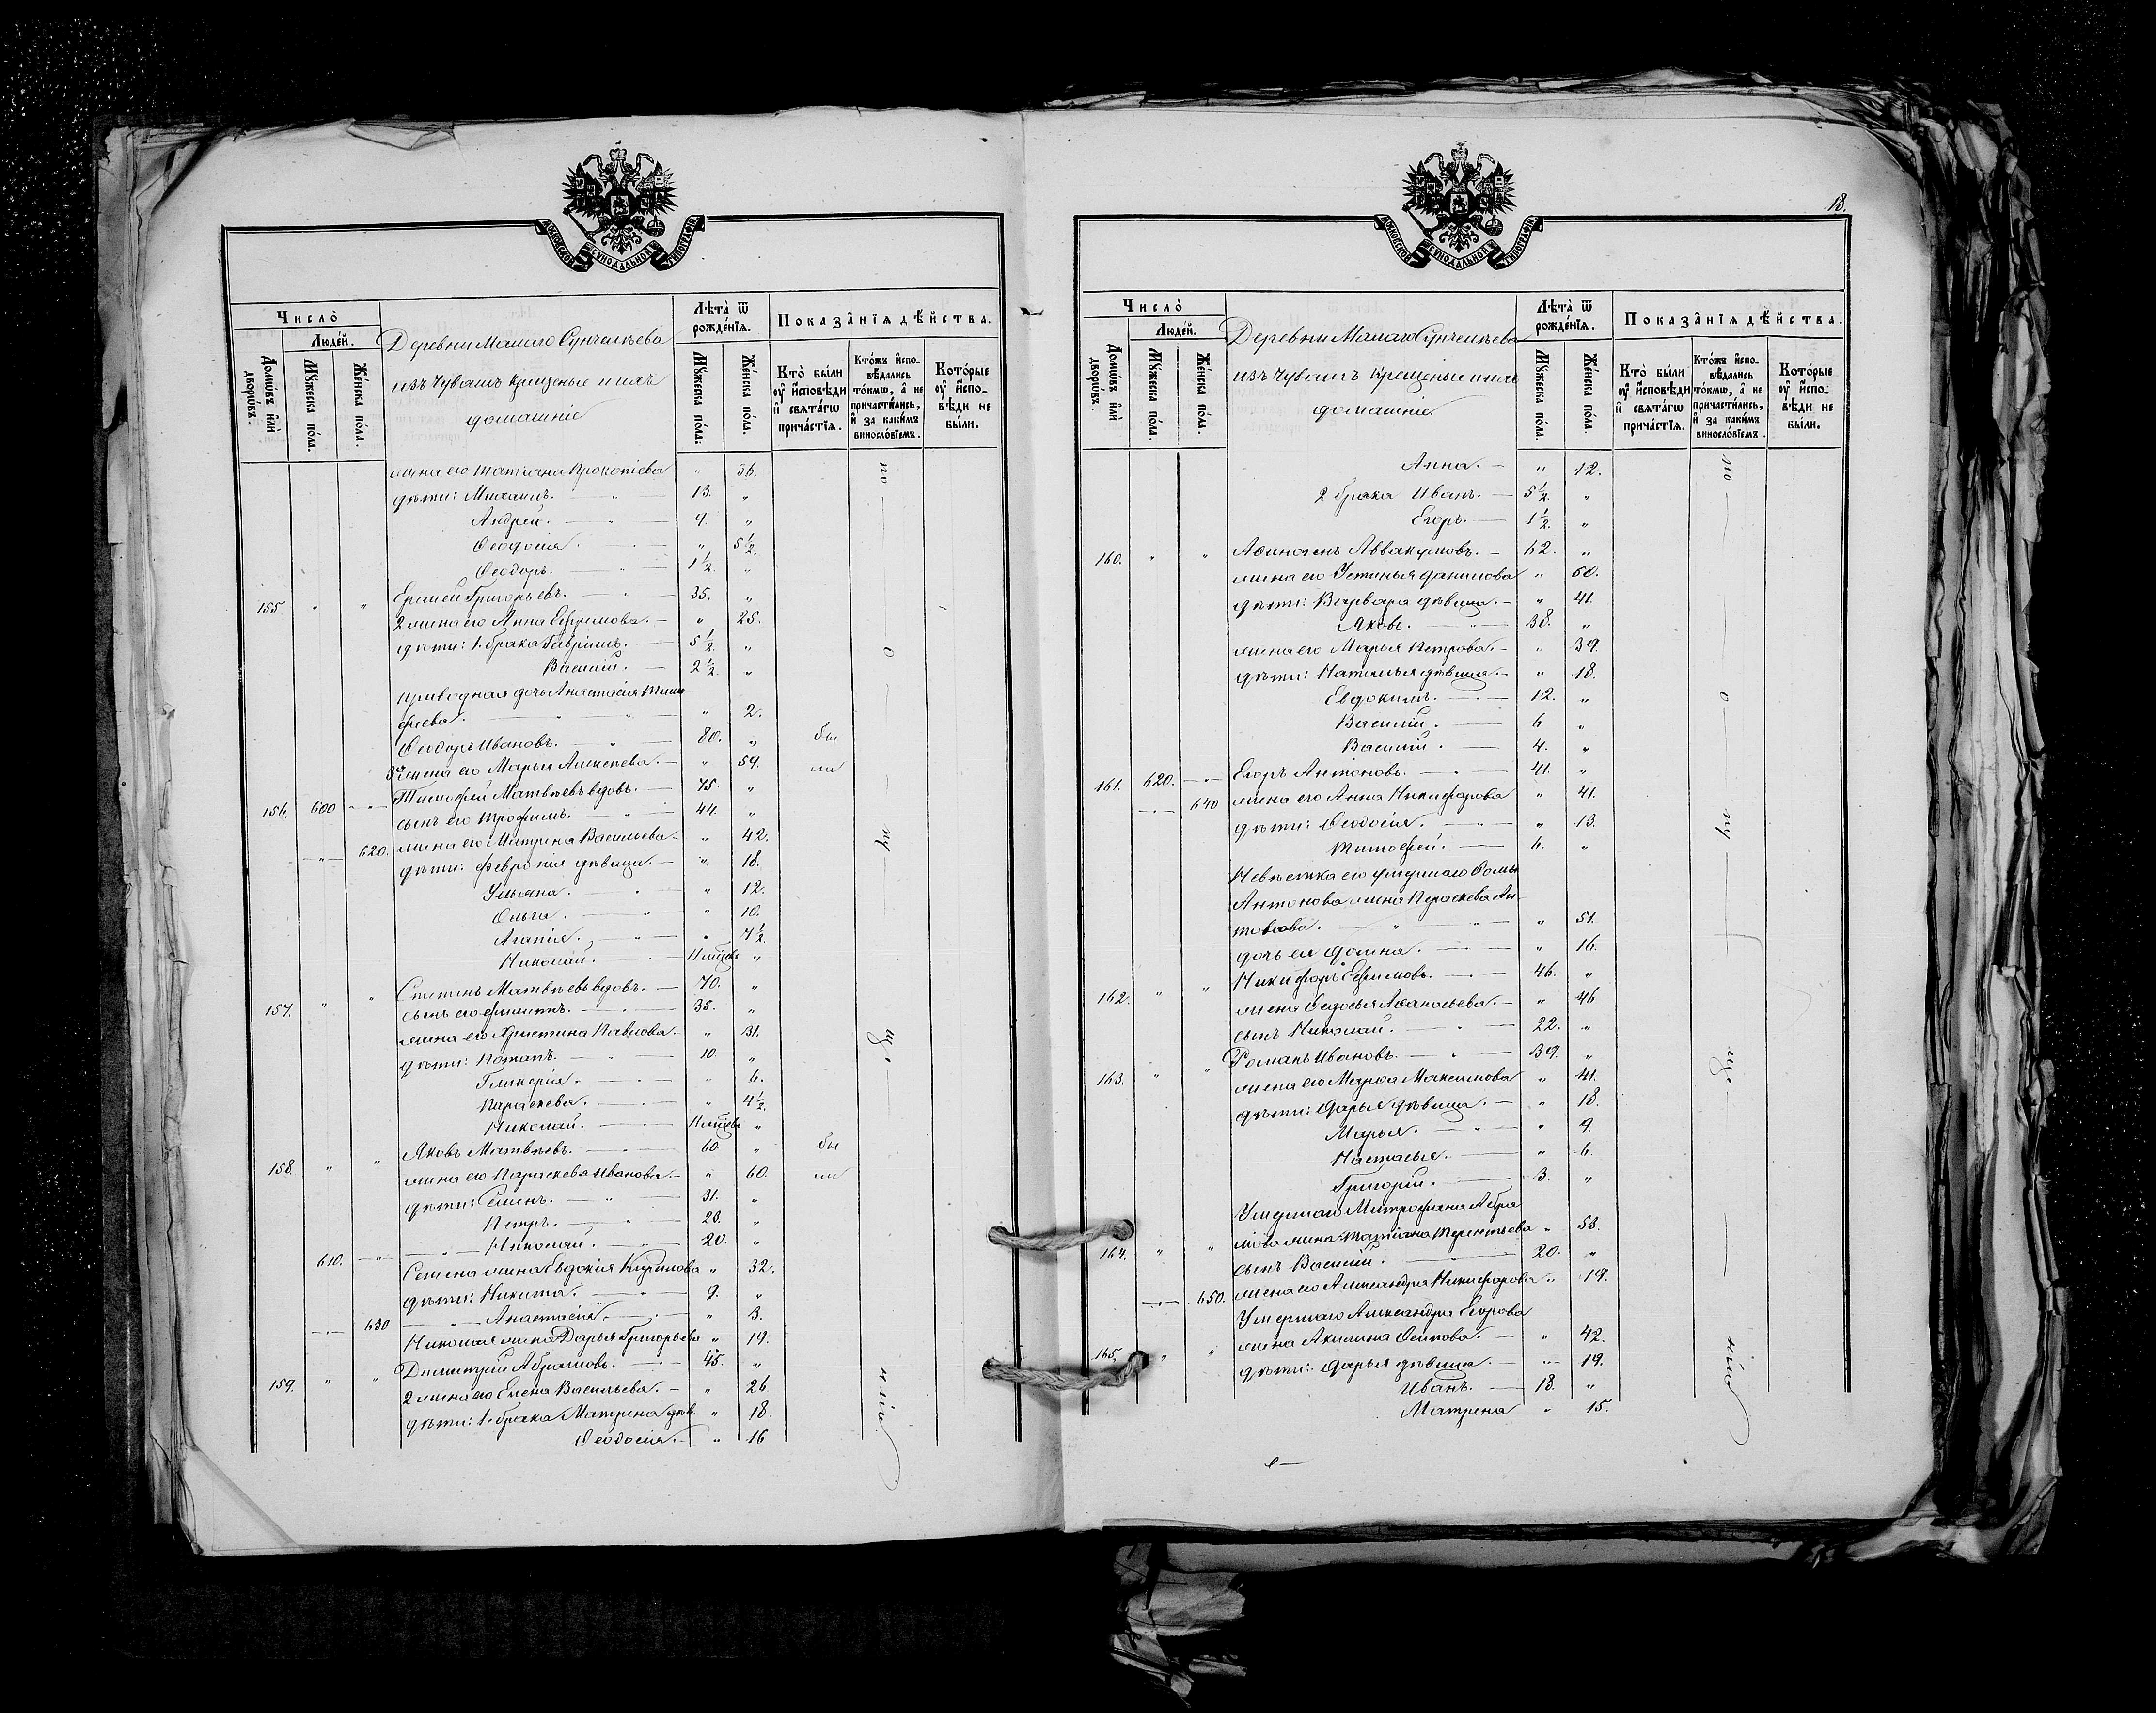 МОСКОВСКОЙ СѴНОДАЛЬНОЙ ТИПОГРАФІИ
Число̀
Люде́й.
Домѡ́въ и҆лѝ дворѡ́въ.
Мꙋ́жеска по́ла.
Же́нска по́ла.
Деревни Малаго Сунчелѣева
изъ Чувашъ крещеные и ихъ
домашніе
Лѣта̀ ѿ рожде́нїѧ.
Мꙋ́жеска по́ла.
Же́нска по́ла.
Показа̂нїѧ дѣ́йства.
Кто̀ бы́ли ᲂу҆ и҆́сповѣди и҆ свѧта́гѡ прича́стїѧ.
Кто́жъ и҆спо-вѣ́дались то́кмѡ, а҆ не причасти́лись, и҆ за каки́мъ виносло́вїемъ.
Кото́рые ᲂу҆ и҆́спо-вѣди не бы́ли.
жена его Татіана Прокопіева " 36.
дѣти: Михаилъ. 13. "
Андрей. 9. "
Ѳеодосія. " 5 1/2.
Ѳеодоръ. 1 1/2. "
155 " " Ермей Григорьевъ. 35. "
2 жена его Анна Ефремова. " 25.
дѣти: 1. брака Гавріилъ. 5 1/2. "
Василій. 2 1/2. "
приводная дочь Анастасія Тимо
феева. " 2.
Ѳеодоръ Ивановъ. 80. " бы
3я жена его Марья Алексѣева. " 59. ли
156. 600 Тимофей Матвѣевъ вдовъ. 75. "
сынъ его Трофимъ. 44. "
620. жена его Матрена Васильева " 42.
дѣти: Февронія дѣвица. " 18.
Ульяна. " 12.
Ольга. " 10.
Агапія. " 7 1/2.
Николай. "
157. " " Степанъ Матвѣевъ вдовъ. 70. "
сынъ его Филиппъ. 35. "
жена его Христина Павлова. " 31.
дѣти: Потапъ. 10. "
Гликерія. " 6.
Параскева. " 4 1/2.
Николай. "
158. " " Яковъ Матвѣевъ. 60 " бы
жена его Параскева Иванова. " 60. ли
дѣти: Семенъ. 31. "
Петръ. 23. "
610. Николай. 20. "
Семена жена Евдокія Кирилова " 32.
дѣти: Никита. 9. "
630 Анастасія. " 3.
Николая жена Дарья Григорьева " 19.
159. " " Димитрій Абрамовъ. 45. "
2 жена его Елена Васильева. " 26
дѣти: 1. брака Матрена дѣв. " 18.
Ѳеодосія. " 16
по
о
ну
ще
нію
18.
МОСКОВСКОЙ СѴНОДАЛЬНОЙ ТИПОГРАФІИ
Число̀
Люде́й.
Домѡ́въ и҆лѝ дворѡ́въ.
Мꙋ́жеска по́ла.
Же́нска по́ла.
Деревни Малаго Сунчелѣева
изъ Чувашъ крещеные и ихъ
домашніе
Лѣта̀ ѿ рожде́нїѧ.
Мꙋ́жеска по́ла.
Же́нска по́ла.
Показа̂нїѧ дѣ́йства.
Кто̀ бы́ли ᲂу҆ и҆́сповѣди и҆ свѧта́гѡ прича́стїѧ.
Кто́жъ и҆спо-вѣ́дались то́кмѡ, а҆ не причасти́лись, и҆ за каки́мъ виносло́вїемъ.
Кото́рые ᲂу҆ и҆́спо-вѣди не бы́ли.
Анна. " 12.
2 брака Иванъ. 5 1/2. "
Егоръ. 1 1/2. "
160. " " Аввакумовъ. 62. "
жена его Устинья Данилова " 60.
дѣти: Варвара дѣвица. " 41.
Яковъ. 38. "
жена его Марья Петрова. " 39.
дѣти: Наталья дѣвица. " 18.
Евдокимъ. 12. "
Василій. 6 "
Василій. 4. "
161. 620. Егоръ Антоновъ. 41. "
640 жена его Анна Никифорова " 41.
дѣти: Ѳеодосія. " 13.
Тимофей. 6. "
Невѣстка его умершаго Ѳомы
Антонова жена Параскева Ан-
тонова. " 51.
дочь ея Домна. " 16.
162. " " Никифоръ Ефимовъ. 46. "
жена Ѳедосья Аѳанасьева. " 46
сынъ Николай. 22. "
163. " " Романъ Ивановъ. 39. "
жена его Марѳа Максимова " 41.
дѣти: Дарья дѣвица. " 18.
Марья. " 9.
Настасья. " 6.
Григорій. 3. "
Умершаго Митрофана Абра
164. " " мова жена Татіана Терентьева " 53.
сынъ Василій. 20. "
650. жена его Александра Никифорова " 19.
Умершаго Александра Егорова
165. " " жена Акилина Осипова. " 42.
дѣти: Дарья дѣвица. " 19.
Иванъ. 18. "
Матрена " 15.
по
о
ну
ще
нію